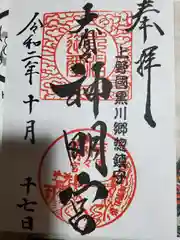 奉拝
上野國黒川郷惣鎮守
神明宮
令和二年
十月
十七日